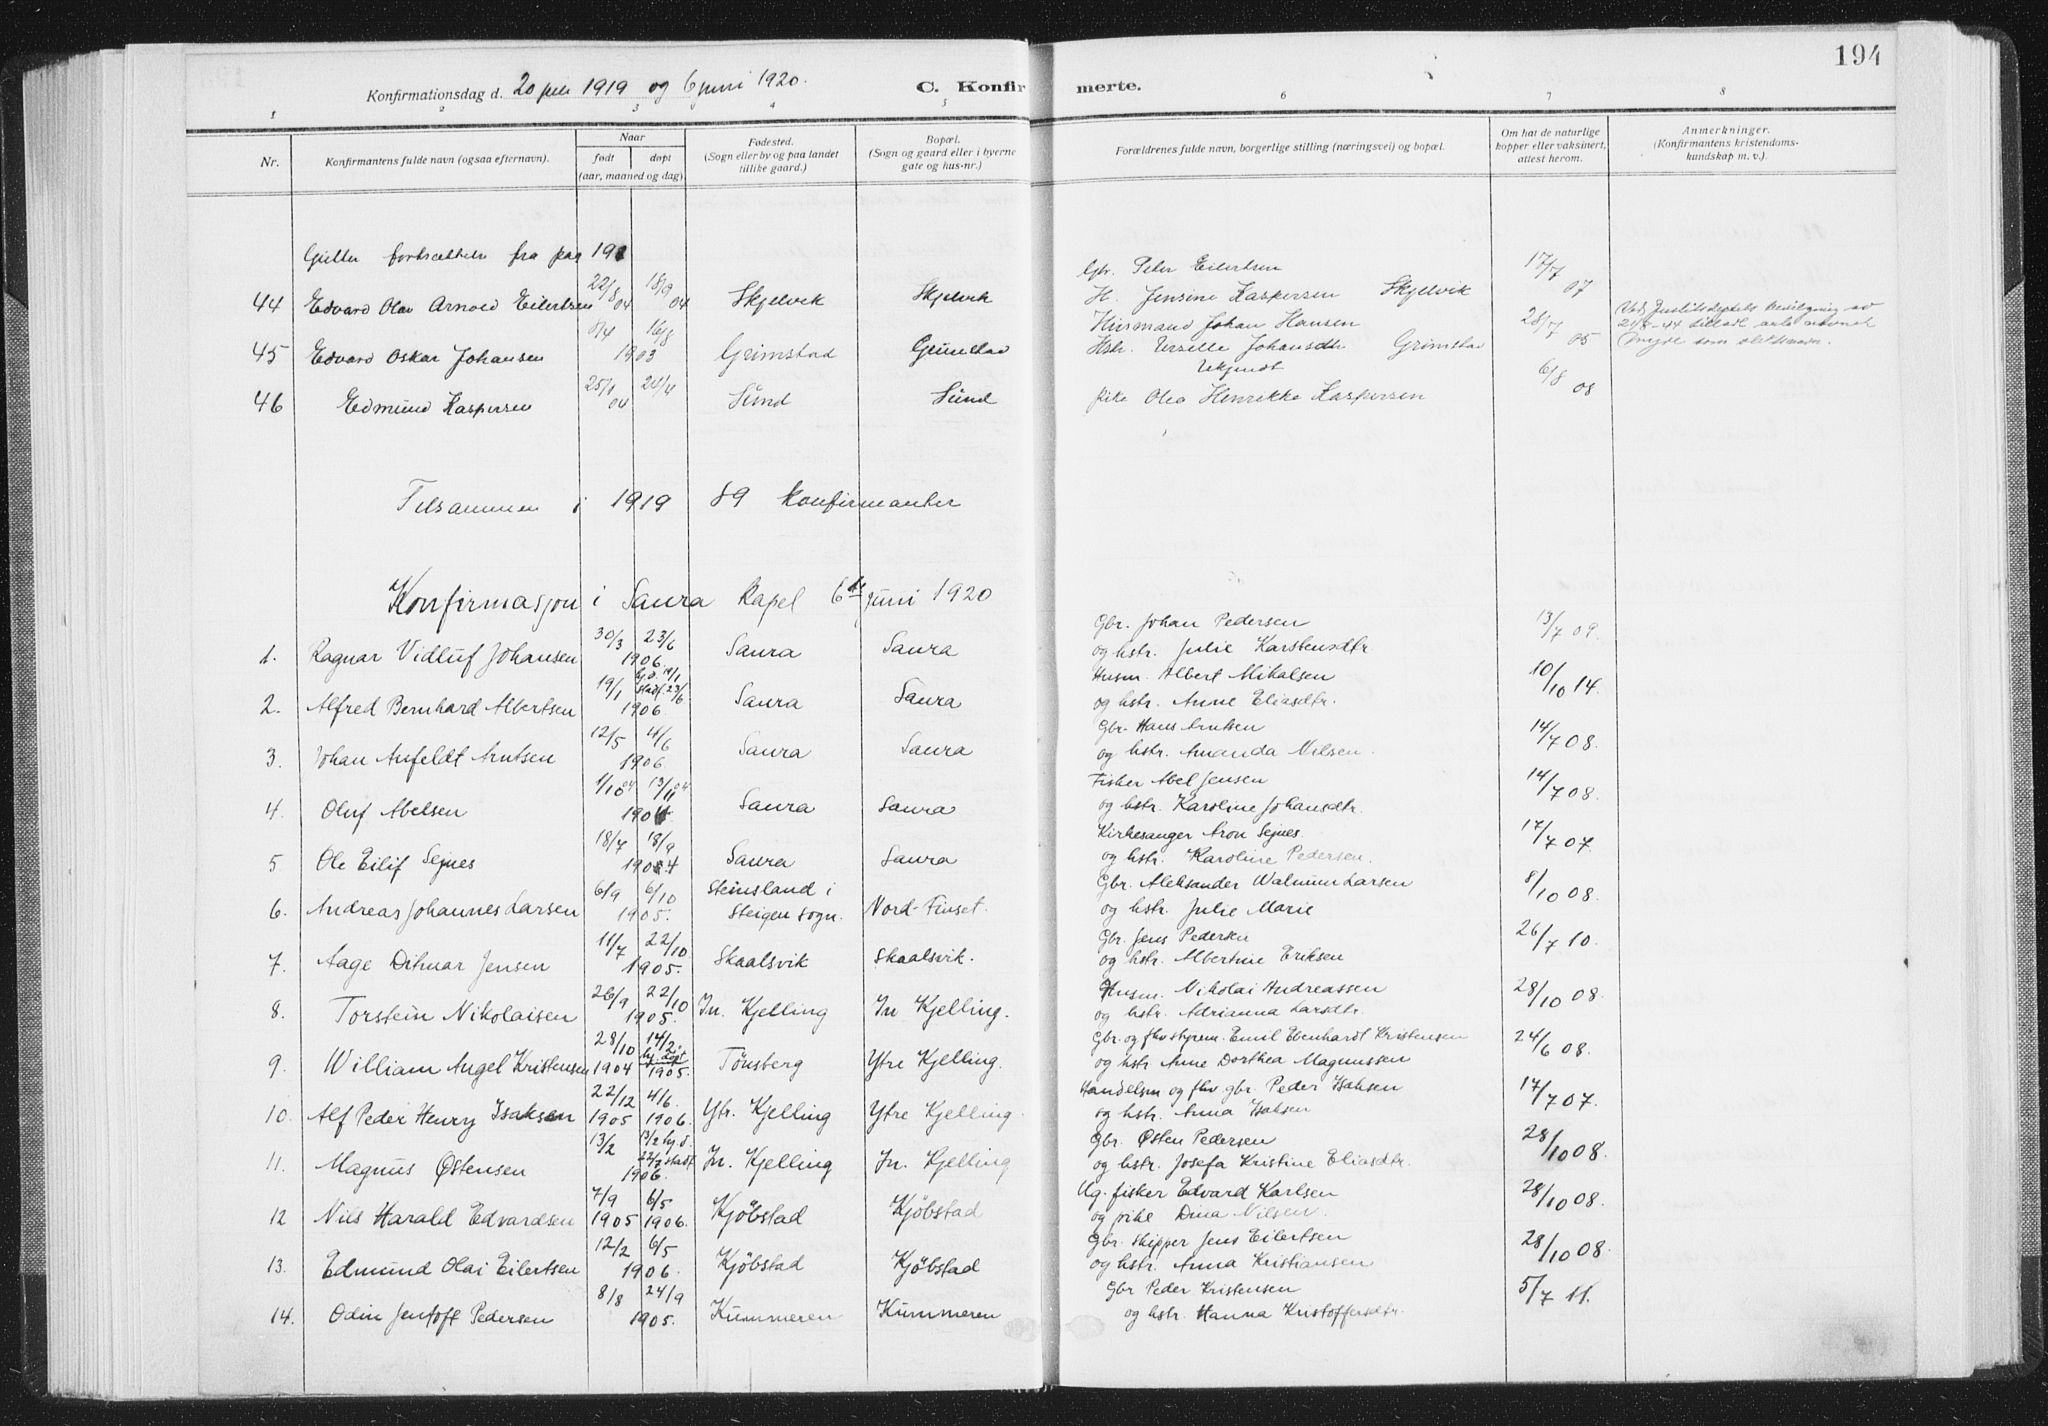 194
Konfirmationsdag d. 20 juli 1919 og 6 juni 1920. C. Konfirmerte.
1 2 3 4 5 6 7 8
Nr. Konfirmantens fulde navn (ogsaa efternavn). Naar født døpt (aar, maaned og dag) Fødested. (Sogn eller by og paa landet tillike gaard.) Bopæl. (Sogn og gaard eller i byerne gate og hus-nr.) Forældrenes fulde navn, borgerlige stilling (næringsvei) og bopæl. Om hat de naturlige kopper eller vaksinert, attest herom. Anmerkninger. (Konfirmantens kristendomskundskap m. v.).
Gutter fortsættelse fra pag 191
44 Edvard Olav Arnold Eilertsen 22/8 04 18/9 04 Skjelvik Skjelvik Gbr. Peter Eilertsen H. Jensine Kaspersen Skjelvik 17/7 07
45 Edvard Oskar Johansen 8/4 16/8 1903 Grimstad Grimstad Husmand Johan Hansen Hstr. Johansdtr Grimstad 28/7 05 Ved Justitsdeptets bevilgning av 21/8-44 tilladt som slektsnavn.
46 Edmund Kaspersen 25/1 04 24/4 Sund Sund Ukjendt Pike Olea Henrikke Kaspersen 6/8 08
Tilsammen i 1919 89 konfirmanter
Konfirmasjon i Saura Kapel 6te juni 1920
1. Ragnar Vidluf Johansen 30/3 23/6 1906. Saura Saura Gbr. Johan Pedersen og hstr. Julie Karstensdtr. 13/7 09.
2. Alfred Bernhard Albertsen 19/1 hj.d. 19/1 stadf. 23/6 1906 Saura Saura Husm. Albert Mikalsen og hstr. Anne Eliasdtr. 10/10 14.
3. Johan Anfeldt Arntsen 12/5 4/6 1906. Saura Saura Gbr. Hans Arntsen og hstr. Amanda Nilsen. 14/7 08.
4. Oluf Abelsen 1/10 04 13/11 04 1904 Saura Saura Fisker Abel Jensen og hstr. Karoline Johansdtr. 14/7 08.
5 Ole Eilif Sejnes 18/7 18/9 1904 Saura Saura Kirkesanger Aron Sejnes. og hstr. Karoline Pedersen. 17/7 07.
6. Andreas Johannes Larsen 6/9 6/10 1905. Steinsland i Steigen sogn. Nord-Finset. Gbr. Aleksander Walnum Larsen og hstr. Julie Marie 8/10 08.
7. Aage Ditmar Jensen 11/7 22/10 1905. Skaalsvik Skaalsvik. Gbr. Jens Pedersen og hstr. Albertine Eriksen 26/7 10.
8. Torstein Nikolaisen 26/9 22/10 1905. In. Kjelling In Kjelling. Husm. Nikolai Andreassen og hstr. Adrianna Larsdtr. 28/10 08.
9. William Angel Kristensen 28/10 1904 14/2 hj. døpt 1905. Tönsberg Ytre Kjelling. Gbr. og fhv styrem. Emil Ebenhardt Kristensen og hstr Anne Dorthea Magnussen 24/6 08.
10. Alf Peder Henry Isaksen 22/12 1905 4/6 1906. Ytr. Kjelling Ytre Kjelling. Handelsm og fhv. gbr. Peder Isaksen og hstr. Anna Isaksen 17/7 07.
11. Magnus Østensen 13/2 13/2 hj.d. 22/7 stadf. 1906. In. Kjelling In. Kjelling Gbr. Østen Pedersen og hstr. Josefa Kristine Eliasdtr. 28/10 08.
12 Nils Harald Edvardsen 7/9 1905 6/5 1906. Kjöbstad Kjöbstad Ug. fisker Edvard Karlsen og pike Dina Nilsen. 28/10 08.
13. Edmund Olai Eilertsen 12/2 6/5 1906. Kjöbstad Kjöbstad Gbr. skipper Jens Eilertsen og hstr. Anna Kristiansen 28/10 08.
14. Odin Jentoft Pedersen 8/8 24/9 1905. Kummeren Kummeren Gbr Peder Kristensen og hstr. Hanna Kristoffersdtr. 5/7 11.